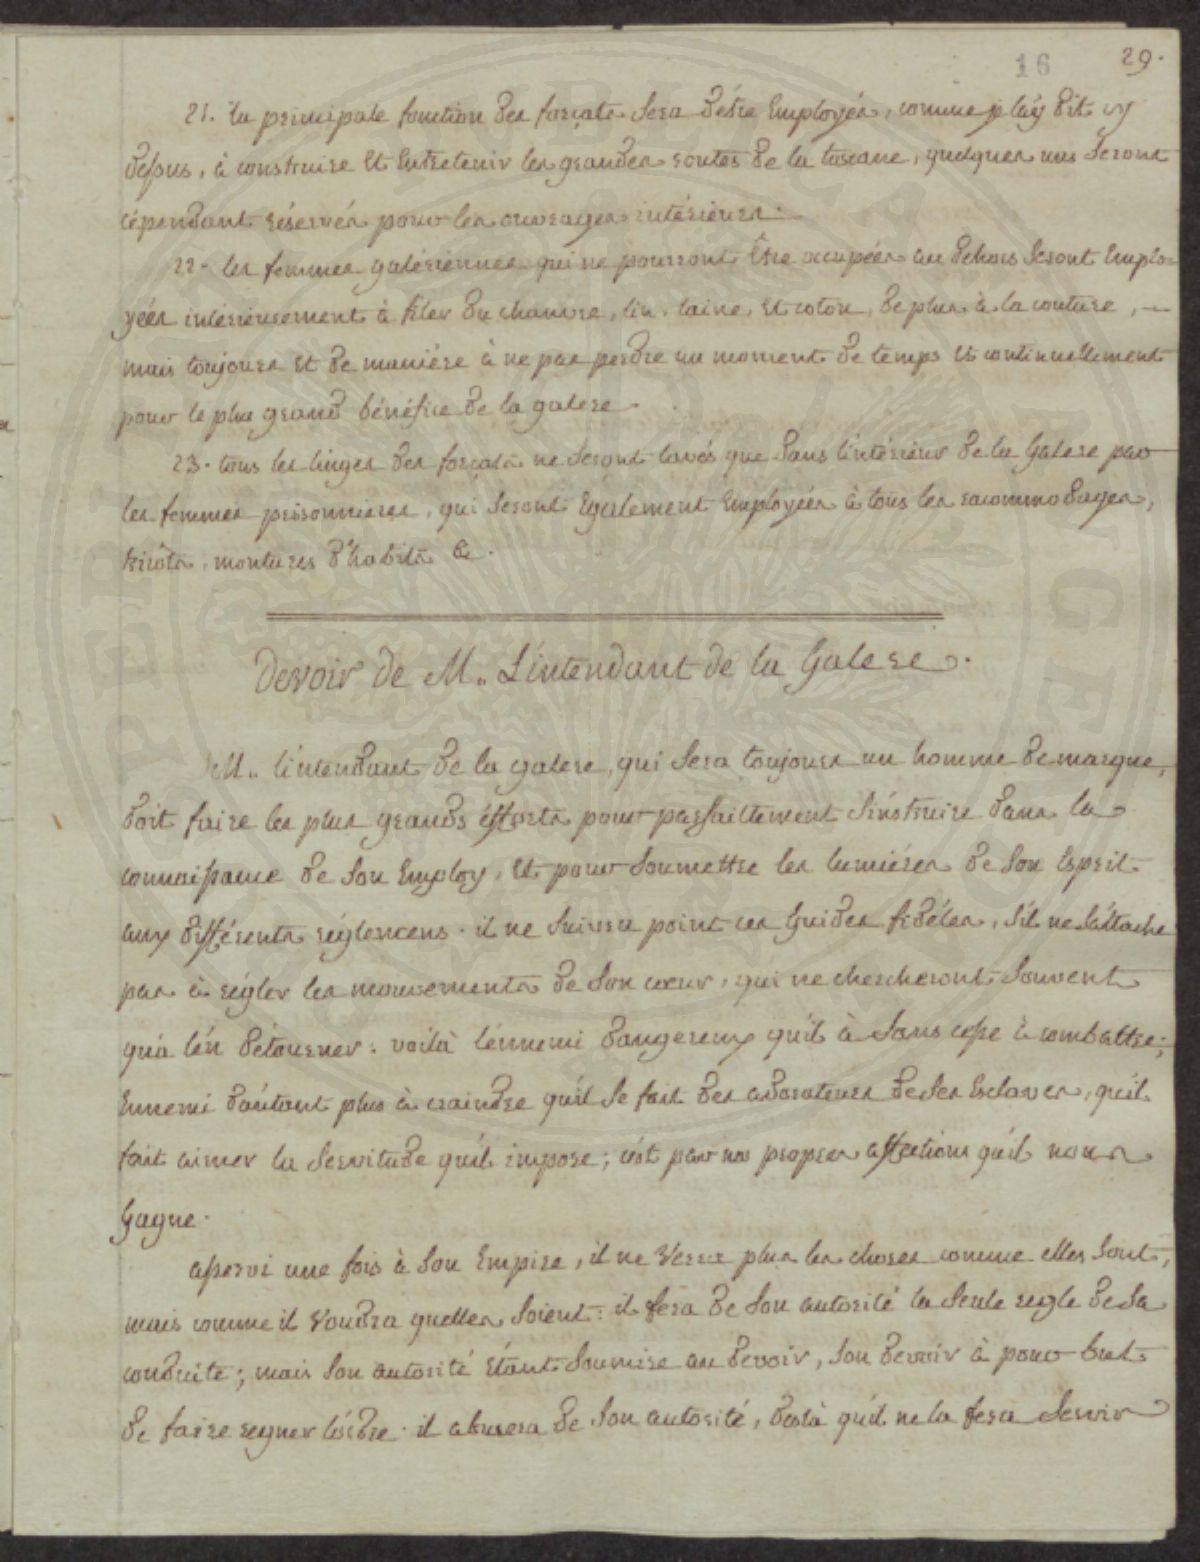 16 29.
21. la principale fonction des forçats sera d'être Employés, comme je l'aÿ dit cy
dessus, à construire Et Entretenir les grandes routes de la toscane, quelques uns seront
cépendant réservés pour les ouvrages intérieurs.
22. les femmes galériennes qui ne pourront Être occupées au dehors seront Emplo-
yées intérieurement à filer du chanvre, lin, laine, Et coton, de plus à la couture, —
mais toujours Et de maniére à ne pas perdre un moment de temps Et continuellement
pour le plus grand bénéfice de la galere.
23. tous les linges des forçats ne seront lavés que dans l'intérieur de la Galere par
les femmes prisonnieres, qui seront Egalement Employées à tous les racommodages,
tricôts, montures d'habits &.
Devoir de M.. L'intendant de la Galere.
M.. l'intendant de la galere, qui sera toujours un homme de marque,
doit faire les plus grands éfforts pour parfaittement s'instruire dans la
connoissance de son Employ, Et pour soumettre les lumiéres de son Esprit
aux différents réglemens. il ne suivra point ces Guides fidéles, s'il ne s'attache
pas à régler les mouvements de son cœur, qui ne chercheront souvent
qu'à l'en détourner. voilà l'énnemi dangereux qu'il à sans cesse à combattre;
Ennemi d'autant plus à craindre qu'il se fait des adorateurs de ses Esclaves, qu'il
fait aimer la servitude qu'il impose; c'ést par nos propres affections qu'il nous
Gagne.
asservi une fois à son Empire, il ne verra plus les choses comme elles sont,
mais comme il voudra quelles soient: il fera de son autorité la seule regle de sa
conduite; mais son autorité Etant soumise au devoir, son devoir à pour but
de faire regner l'órdre. il abusera de son autorité, deslà qu'il ne la fera servir